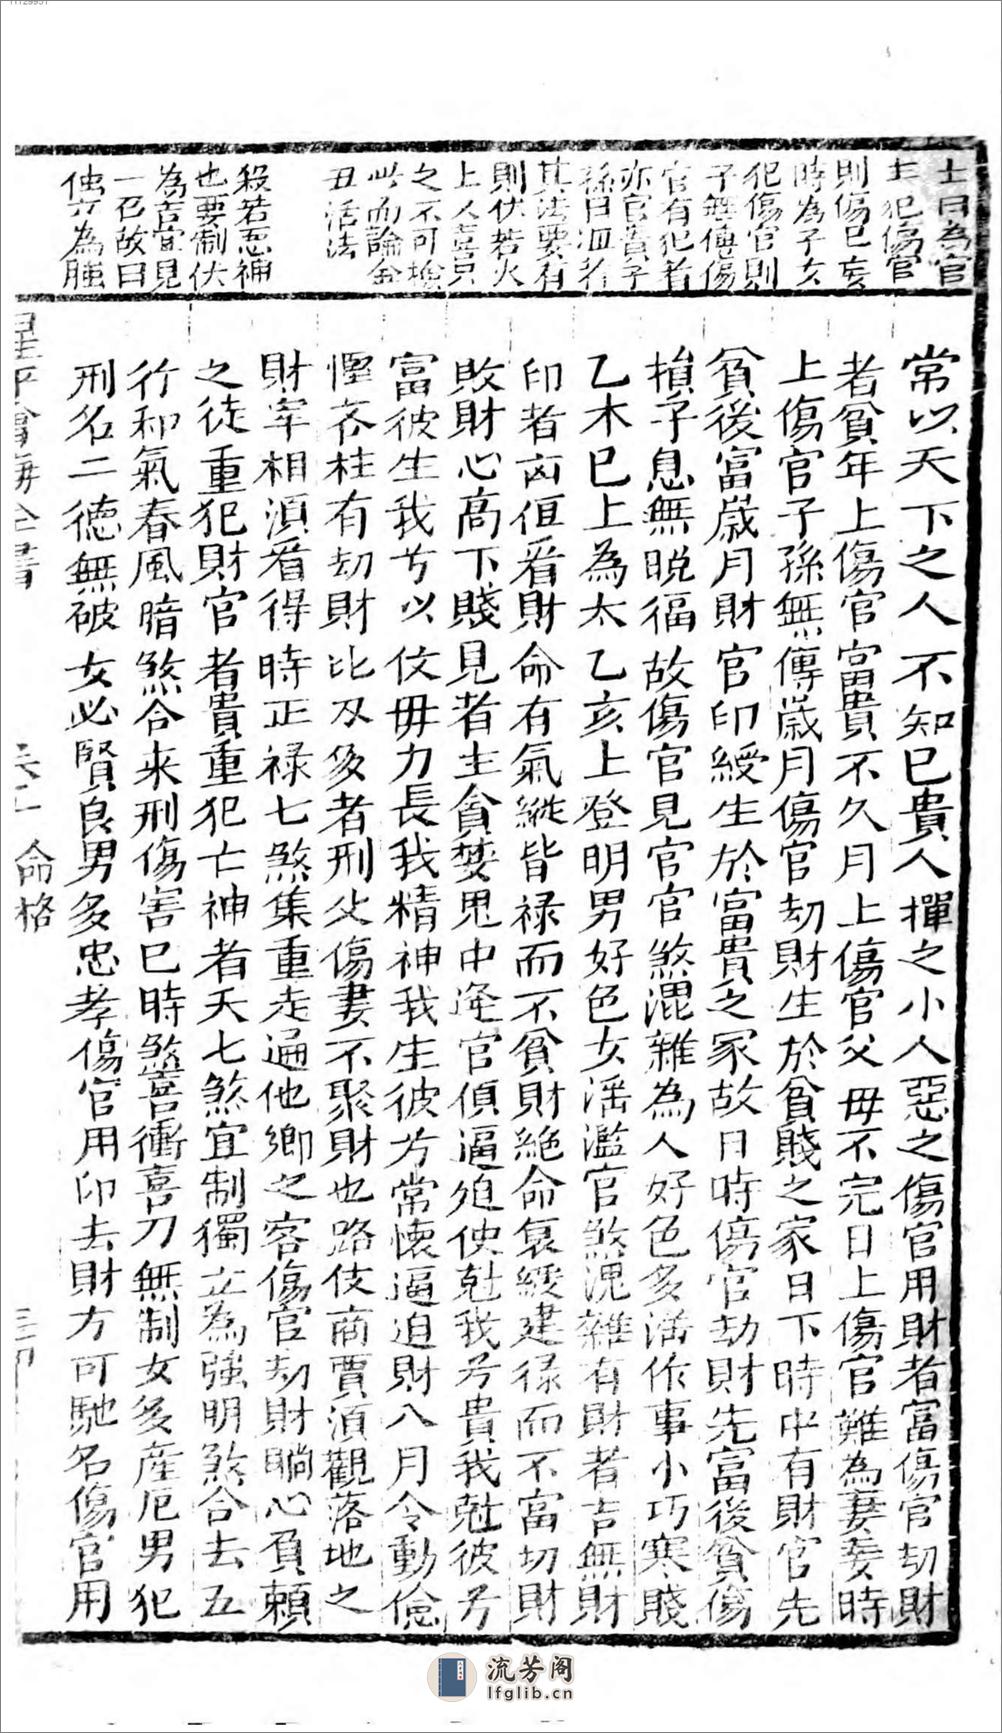 11129951
士日為官
主犯傷官
則傷巳妄
時為子女
犯傷官則
子無傳傷
官有犯者
亦官貴子
孫日泄者
其法要有
則伏若火
上人喜只
之不可撿
此而論金
丑活法
殺若惡神
也要制伏
為吉宜見
一名故曰
傳六為
常以天下之人不知巳貴人撣之小人惡之傷官用財者富傷官刧財
者貧年上傷官富貴不久月上傷官父母不完日上傷官難為妻妾時
上傷官子孫無傳歲月傷官刧財生於貧賤之家日下時中有財官先
貧後富歲月財官印綬生於富貴之冢故日時傷官刧財先富後貧傷
損子息無晩福故傷官見官官煞混雜為人好色多滛作事小巧寒賤
乙木巳上為太乙亥上登明男好色女滛濫官煞混雜有財者吉無財
印者凶但看財命有氣縱皆禄而不貧財絶命衰綬建禄而不富刧財
敗財心高下賤見者主貪婪鬼中逄官偵逼迫使尅我兮貴我尅彼兮
富彼生我兮以仗毋力長我精神我生彼方常懷逼迫財八月令動儉
慳吝柱有刧財比及多者刑父傷妻不聚財也路伎商賈湏觀落地之
財宰相湏看得時正禄七煞集重走遍他鄉之客傷官刧財瞞心負頼
之徒重犯財官者貴重犯亡神者夭七煞宜制獨立為強明煞合去五
行和氣春風暗煞合来刑傷害巳時煞喜衝喜刀無制女多產厄男犯
刑名二德無破女必賢良男多忠孝傷官用印去財方可馳名傷官用
星平會海全書
命格
流芳阁
lfglib.cn